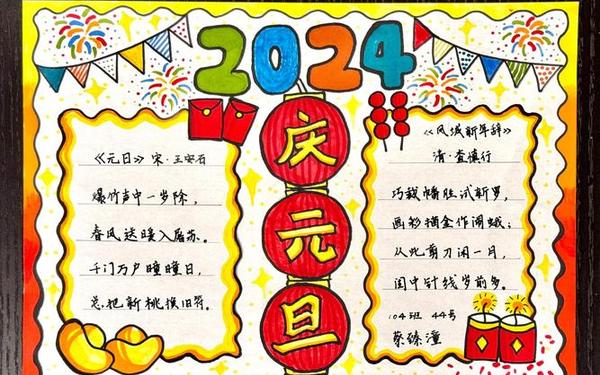 2024
庆元旦
《元日》宋·王安石
爆竹声中一岁除，
春风送暖入屠苏。
千门万户曈曈日，
总把新桃换旧符。
《凤城新年辞》
清·查慎行
巧裁幡胜试新罗，
画彩描金作闹蛾；
从此剪刀闲一月，
闺中针线岁前多。
104班 44号
蔡臻潼